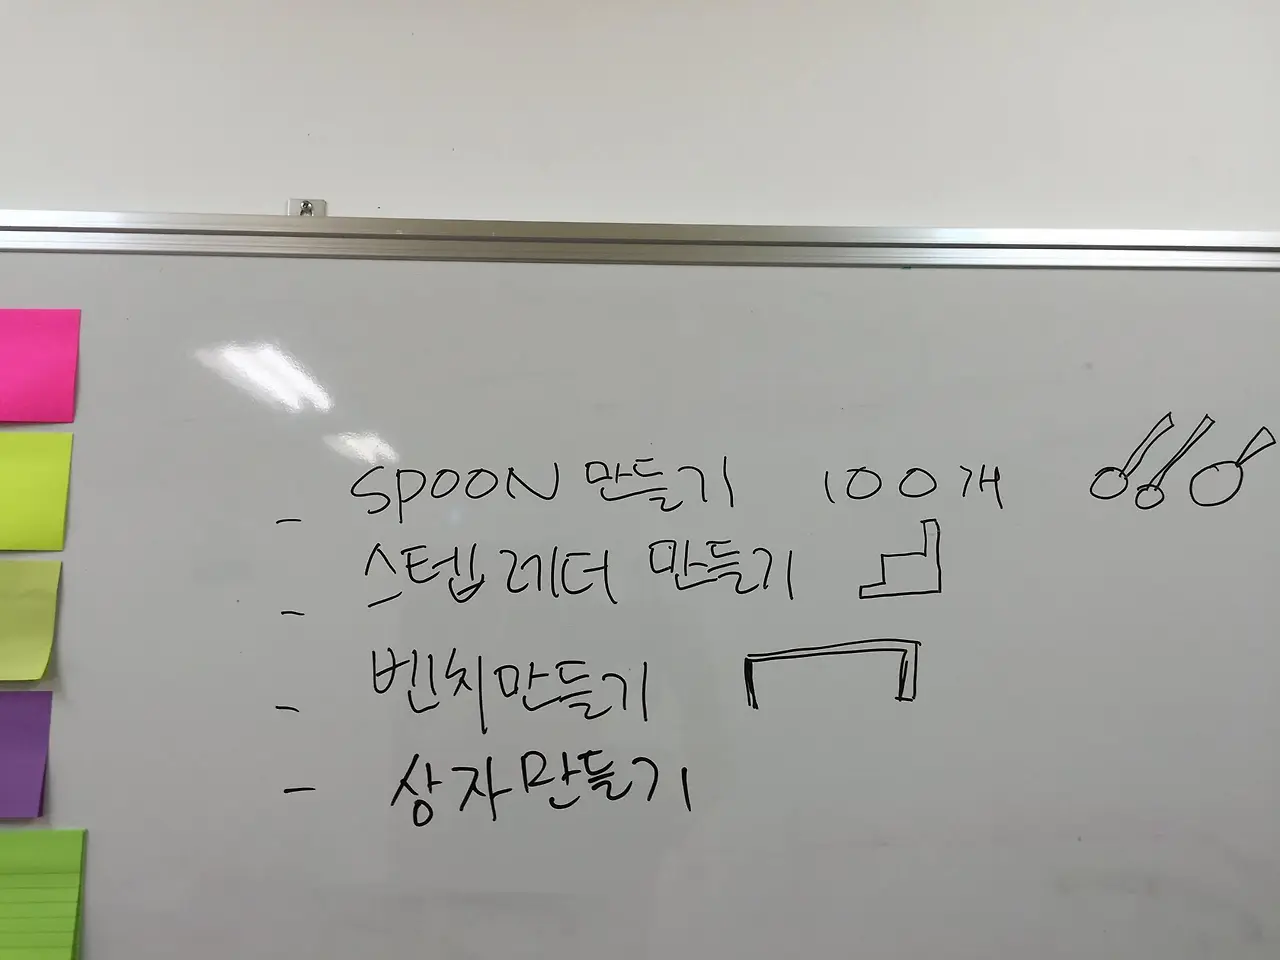 - SPOON 만들기 100개
- 스텝레더 만들기
- 벤치만들기
- 상자만들기